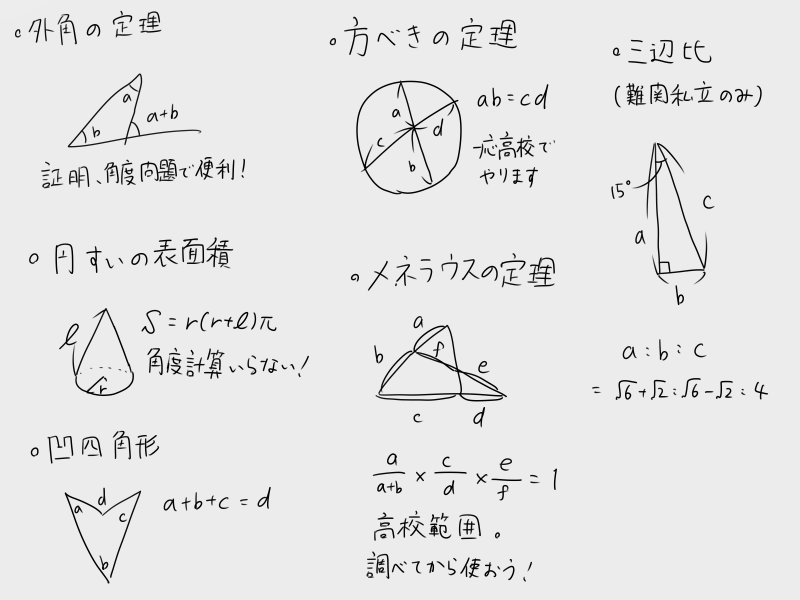 外角の定理
a
b
a+b
証明、角度問題で便利!
円すいの表面積
l
r
S = r(r+l)π
角度計算いらない!
凹四角形
a
d
c
b
a+b+c = d
方べきの定理
a
d
c
b
ab = cd
一応高校で
やります
メネラウスの定理
a
b
f
e
c
d
a/(a+b) × c/d × e/f = 1
高校範囲。
調べてから使おう!
三辺比
(難関私立のみ)
15°
a
c
b
a : b : c
= √6+√2 : √6-√2 : 4